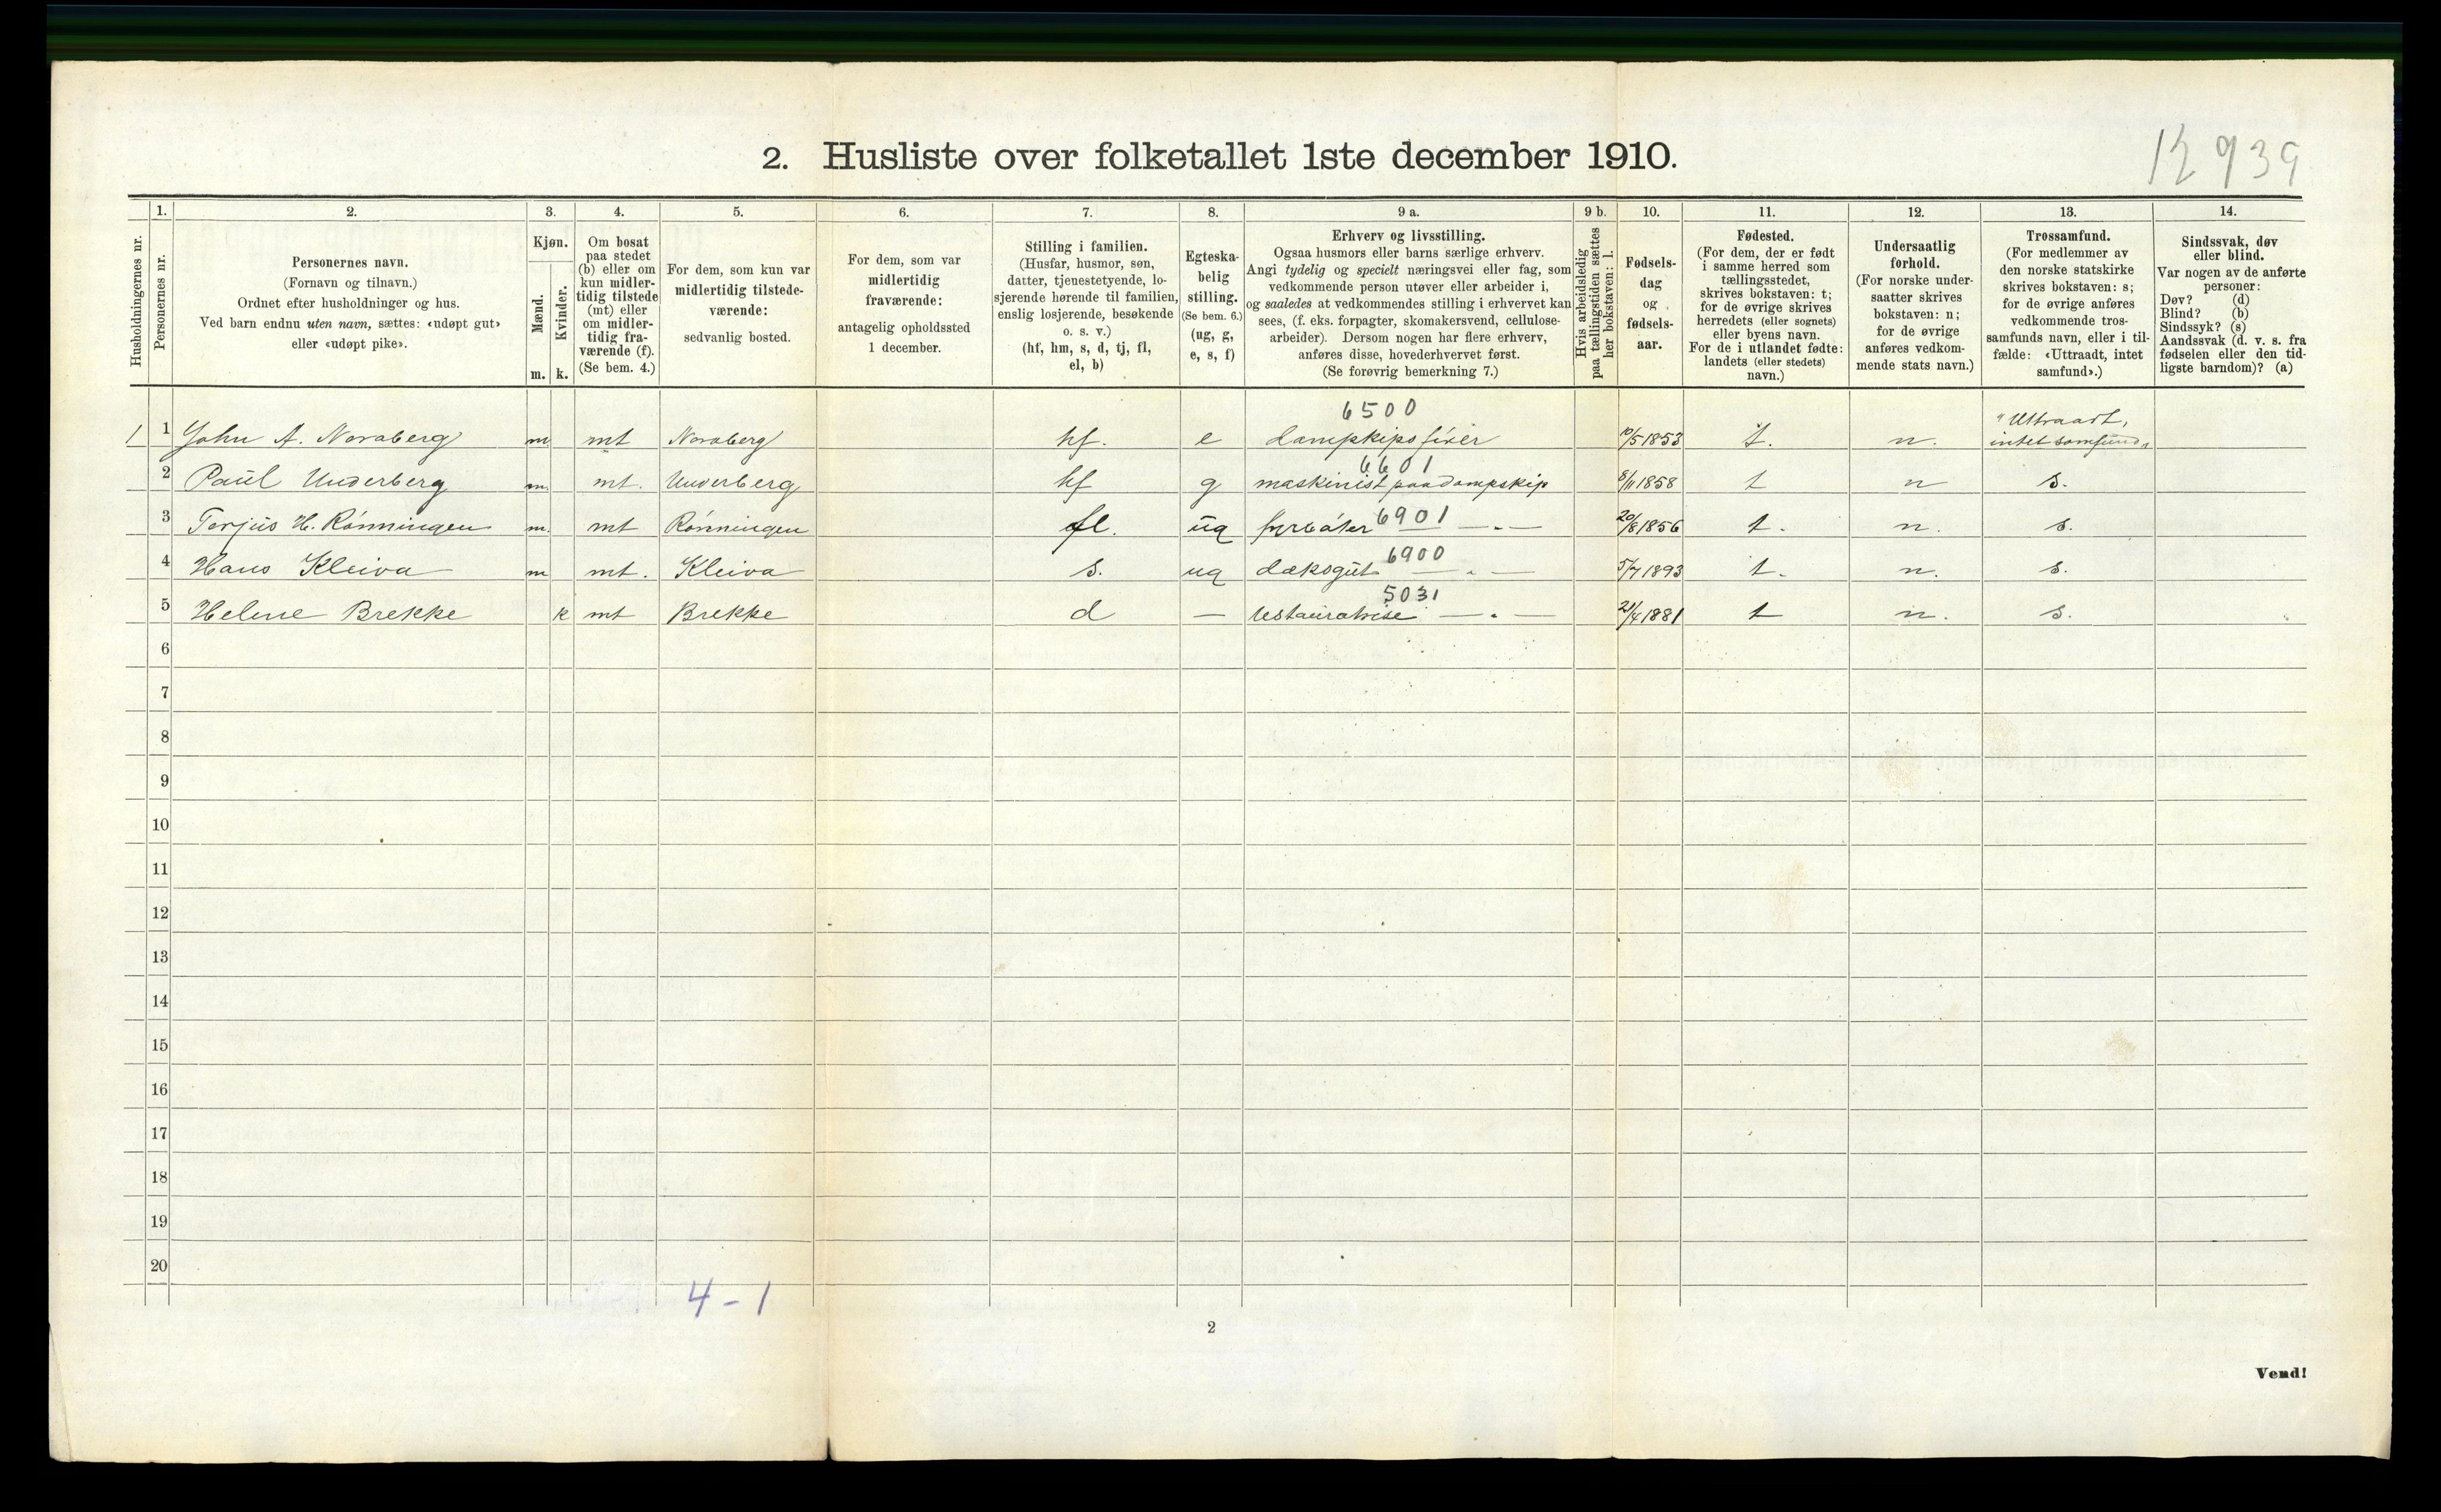 12 939
2. Husliste over folketallet 1ste december 1910.
Husholdningernes nr.
1.
Personernes nr.
2.
Personernes navn.
(Fornavn og tilnavn.)
Ordnet efter husholdninger og hus.
Ved barn endnu uten navn, sættes: «udøpt gut»
eller «udøpt pike».
3.
Kjøn.
Mænd.
Kvinder.
m. k.
4.
Om bosat
paa stedet
(b) eller om
kun midler-
tidig tilstede
(mt) eller
om midler-
tidig fra-
værende (f).
(Se bem. 4.)
5.
For dem, som kun var
midlertidig tilstede-
værende:
sedvanlig bosted.
6.
For dem, som var
midlertidig
fraværende:
antagelig opholdssted
1 december.
7.
Stilling i familien.
(Husfar, husmor, søn,
datter, tjenestetyende, lo-
sjerende hørende til familien,
enslig losjerende, besøkende
o. s. v.)
(hf, hm, s, d, tj, fl,
el, b)
8.
Egteska-
belig
stilling.
(Se bem. 6.)
(ug, g,
e, s, f)
9 a.
Erhverv og livsstilling.
Ogsaa husmors eller barns særlige erhverv.
Angi tydelig og specielt næringsvei eller fag, som
vedkommende person utøver eller arbeider i,
og saaledes at vedkommendes stilling i erhvervet kan
sees, (f. eks. forpagter, skomakersvend, cellulose-
arbeider). Dersom nogen har flere erhverv,
anføres disse, hovederhvervet først.
(Se forøvrig bemerkning 7.)
9 b.
Hvis arbeidsledig
paa tællingstiden sættes
her bokstaven: l.
10.
Fødsels-
dag
og
fødsels-
aar.
11.
Fødested.
(For dem, der er født
i samme herred som
tællingsstedet,
skrives bokstaven: t;
for de øvrige skrives
herredets (eller sognets)
eller byens navn.
For de i utlandet fødte:
landets (eller stedets)
navn.)
12.
Undersaatlig
forhold.
(For norske under-
saatter skrives
bokstaven: n;
for de øvrige
anføres vedkom-
mende stats navn.)
13.
Trossamfund.
(For medlemmer av
den norske statskirke
skrives bokstaven: s;
for de øvrige anføres
vedkommende tros-
samfunds navn, eller i til-
fælde: «Uttraadt, intet
samfund».)
14.
Sindssvak, døv
eller blind.
Var nogen av de anførte
personer:
Døv? (d)
Blind? (b)
Sindssyk? (s)
Aandssvak (d. v. s. fra
fødselen eller den tid-
ligste barndom)? (a)
6500
1 1 John A. Noraberg m mt Noraberg hf. e dampskipsfører 10/5 1853 t. n. "Uttraadt, intet samfund"
6601
2 Paul Underberg m. mt. Underberg hf g maskinist paa dampskip 8/11 1858 t n s.
3 Terjus H. Rønningen m. mt Rønningen fl. ug fyrbøter 6901 — „ — 20/8 1856 t. n. s.
4 Hans Kleiva m mt. Kleiva s. ug dæksgut 6900 — „ — 5/7 1893 t. n. s.
5031
5 Helene Brekke k mt Brekke d — restauratrise — „ — 21/4 1881 t n. s.
6
7
8
9
10
11
12
13
14
15
16
17
18
19
20
4 - 1
2
Vend!